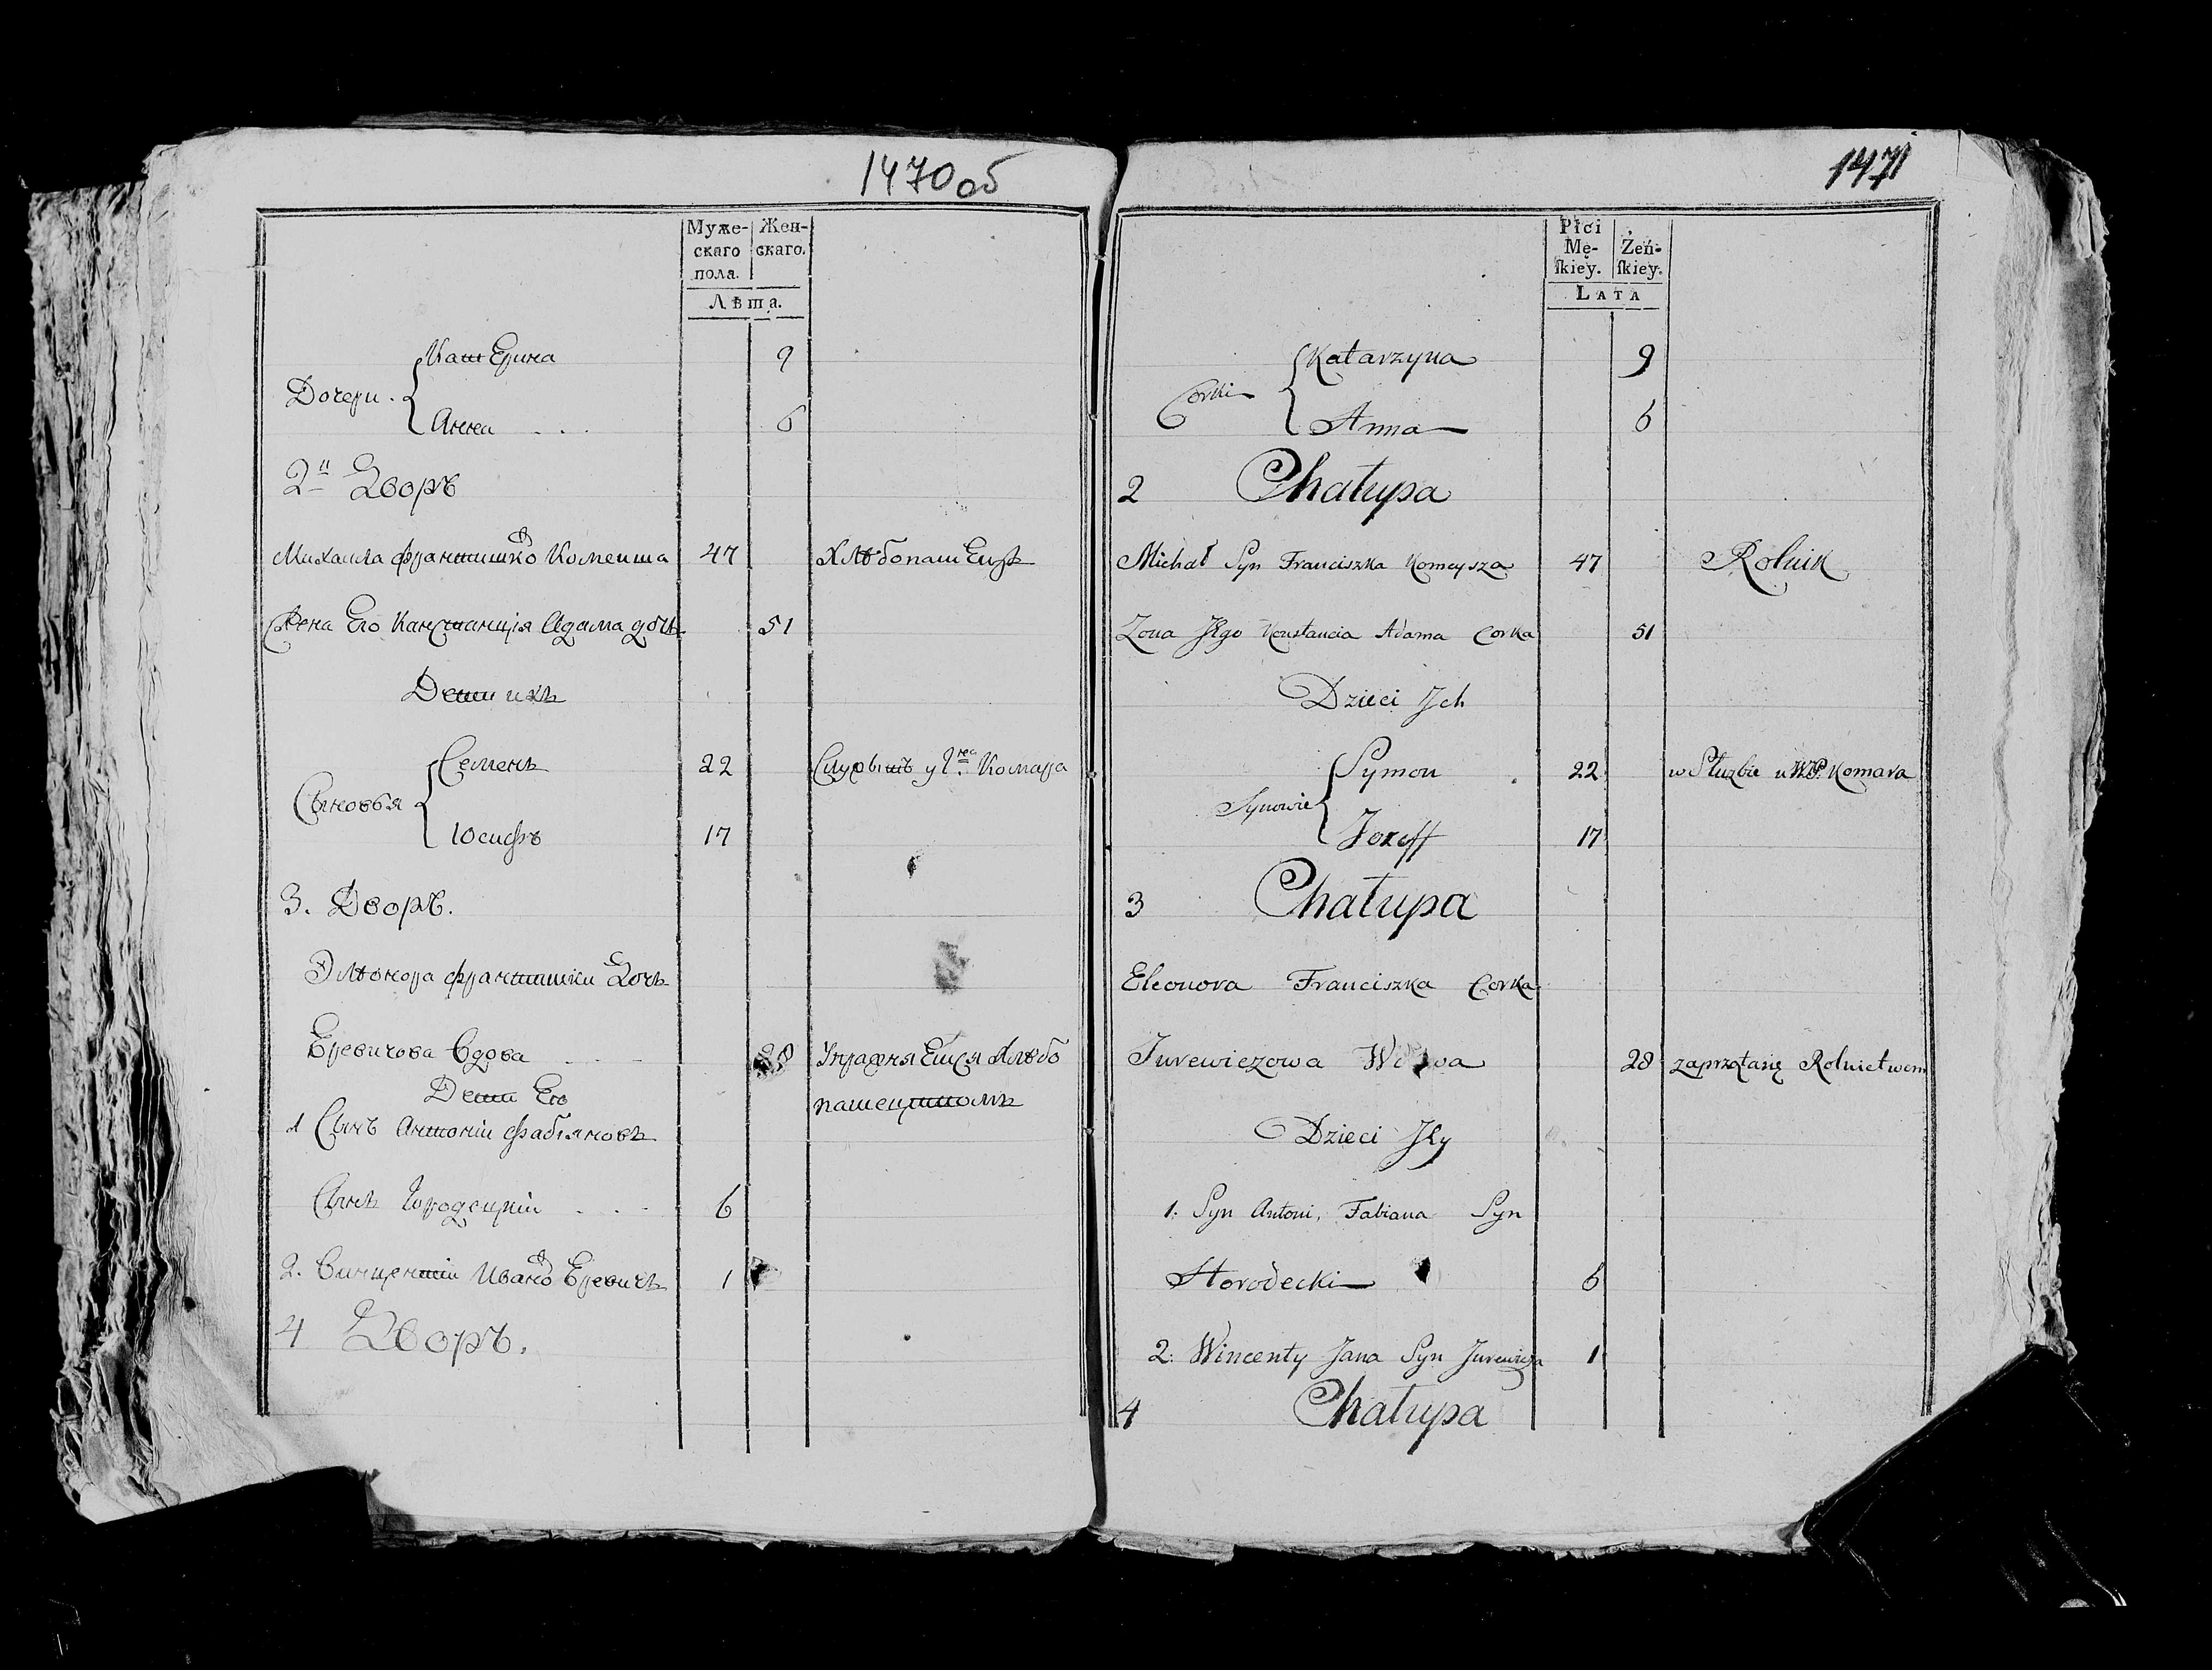 1470об
Муже-
скаго
пола.
Жен-
скаго.
Лѣта.
Катерина 9
Дочери.
Анна . . . 6
2й Дворъ
Михаила Франтишковъ Комеиша 47 Хлѣбопашецъ
Жена Его Канстанція Адама дочь 51
Дети ихъ
Семенъ 22 Служытъ у Гна Комара
Сыновья
Юсифъ 17
3. Дворъ.
Элѣонора Франтишки Дочь
Еревичова Вдова . . . 28 Упражняется Хлѣбо
Дети Его пашецтвомъ
1 Сынъ Антоній Фабіяновъ
Сынъ Городецкій . . . 6
2. Винцентій Ивановъ Еревичъ 1
4 Дворъ.
1471
Płci
Mę-
ſkiey.
Żeń-
ſkiey.
LATA
Katarzyna 9
Corki
Anna 6
2 Chałupa
Michał Syn Franciszka Komeysza 47 Rolnik
Zona Jego Konstancia Adama Corka 51
Dzieci Jch
Symon 22 w Służbie u WP. Komara
Synowie
Jozeff 17
3 Chałupa
Eleonora Franciszka Corka
Jurewiczowa Wdowa 28 zaprzątasię Rolnictwem
Dzieci Jey
1. Syn Antoni, Fabiana Syn
Horodecki 6
2. Wincenty Jana Syn Jurewicza 1
4 Chałupa